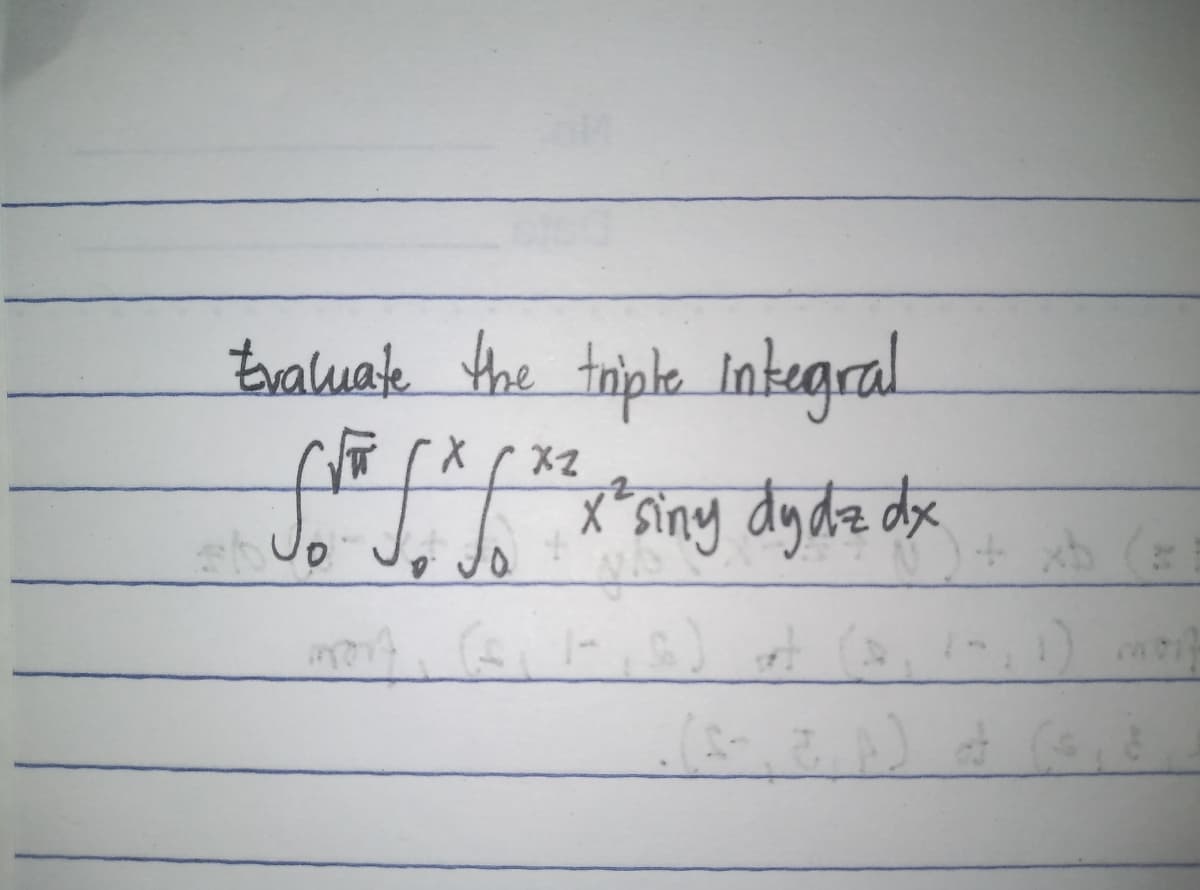 Evaluate the triple integral
∫₀^√π ∫₀^x ∫₀^xz x² sin y dy dz dx